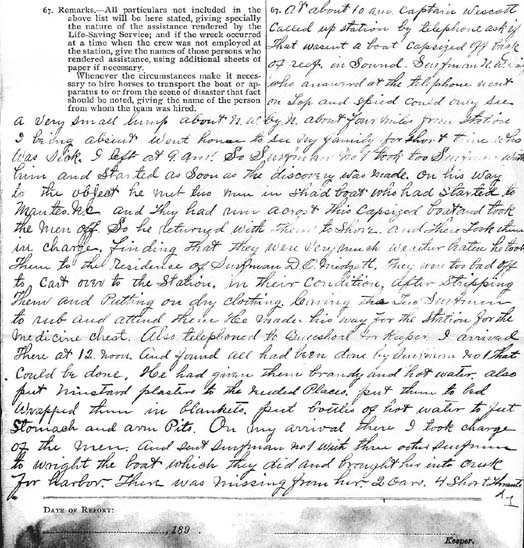 67. Remarks.—All particulars not included in the
above list will be here stated, giving specially
the nature of the assistance rendered by the
Life-Saving Service; and if the wreck occurred
at a time when the crew was not employed at
the station, give the names of those persons who
rendered assistance, using additional sheets of
paper if necessary.
Whenever the circumstances make it neces-
sary to hire horses to transport the boat or ap-
paratus to or from the scene of disaster that fact
should be noted, giving the name of the person
from whom the team was hired.
67. At about 10 am. Captain Wescott
Called up station by telephone ask if
That wasent a boat Capsized off back
of reef in Sound. Surfman
who answered at the telephone went
on Top and spied could only see
a very small lump about N.W. by N. about four miles from Station
I being absent went home to see my family for short time who
was Sick. I left at 9 am. So Surfman No 1 took too Surfmen with
him and Started as Soon as the discovery was made. On his way
to the object he met two men in Shad boat who had Started to
Manteo. N.C. and They had run across this Capsized boat and took
the men off. So he returned with Them to Shore. and There Took them
in charge. Finding that they were very much weather he took
Them to the residence of Surfman D.C. Midgett. They were too bad off
to cart over to the Station. in their Condition, after Stripping
Them and Putting on dry clothing. Leaving the Two Surfmen
to rub and attend them He made his way for the Station for the
medicine chest. Also telephoned to for Keeper. I arrived
There at 12. noon. And found all had been done by Surfman No 1 that
could be done. He had given them brandy and hot water. also
put mustard plasters to the needed Places. put them to bed
wrapped them in blankets. put bottles of hot water to feet
Stomach and arm Pits. On my arrival There I took charge
of the men. And Sent Surfman No 1 with three other Surfmen
to wright the boat which they did and brought her into creek
for harbor. There was missing from her. 2 Oars. 4 Short
DATE OF REPORT:
, 189
Keeper.